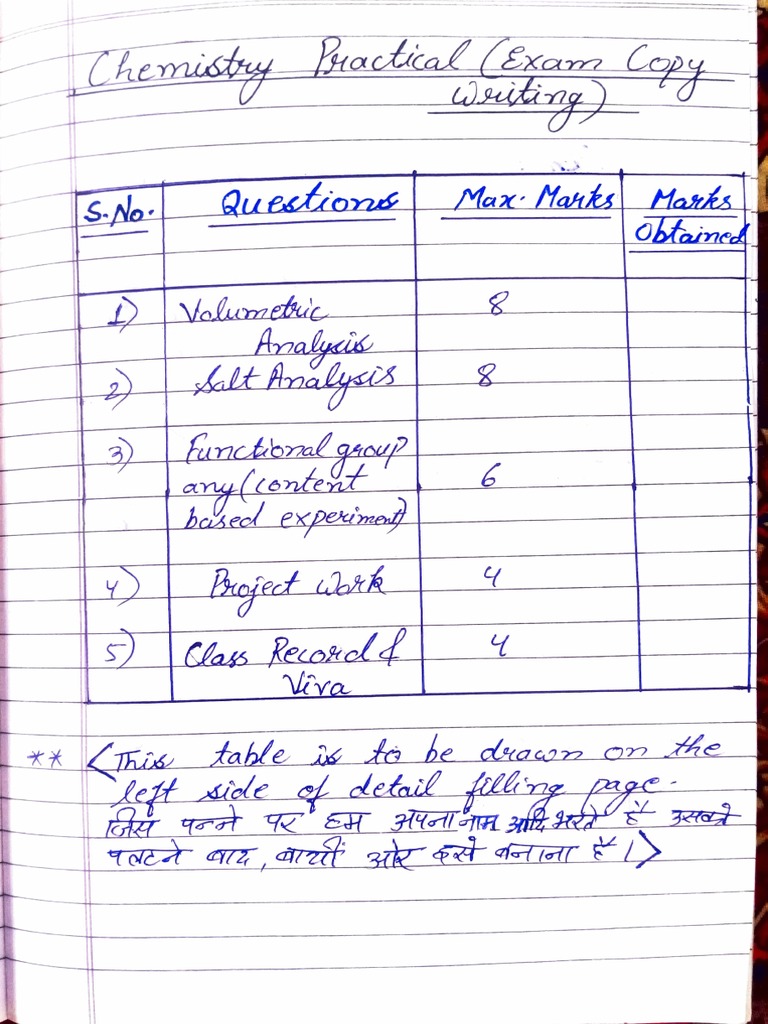 Chemistry Practical (Exam Copy
Writing)
S.No. Questions Max. Marks Marks
Obtained
1) Volumetric 8
Analysis
2) Salt Analysis 8
3) Functional group
any (content 6
based experiment)
4) Project Work 4
5) Class Record & 4
Viva
** <This table is to be drawn on the
left side of detail filling page.
जिस पन्ने पर हम अपना नाम आदि भरते हैं उसको
पलटने बाद, बायीं ओर इसे बनाना है।>